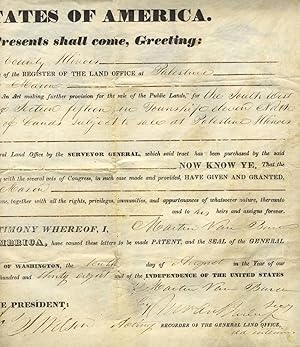 TATES OF AMERICA.
Presents shall come, Greeting:
County Illinois
of the REGISTER OF THE LAND OFFICE at Palestine
Mason
An Act making further provision for the sale of the Public Lands," for the South West
of Section in Township eleven North
of Lands subject to sale at Palestine Illinois
eral Land Office by the SURVEYOR GENERAL, which said tract has been purchased by the said
NOW KNOW YE, That the
with the several acts of Congress, in such case made and provided, HAVE GIVEN AND GRANTED,
Mason
one, together with all the rights, privileges, immunities, and appurtenances of whatsoever nature, thereunto
and to his heirs and assigns forever.
TIMONY WHEREOF, I, Martin Van Buren
MERICA, have caused these letters to be made PATENT, and the SEAL of the GENERAL
OF WASHINGTON, the tenth day of August in the Year of our
undred and thirty eight and of the INDEPENDENCE OF THE UNITED STATES
Martin Van Buren
HE PRESIDENT:
Acting RECORDER OF THE GENERAL LAND OFFICE,
ad interim